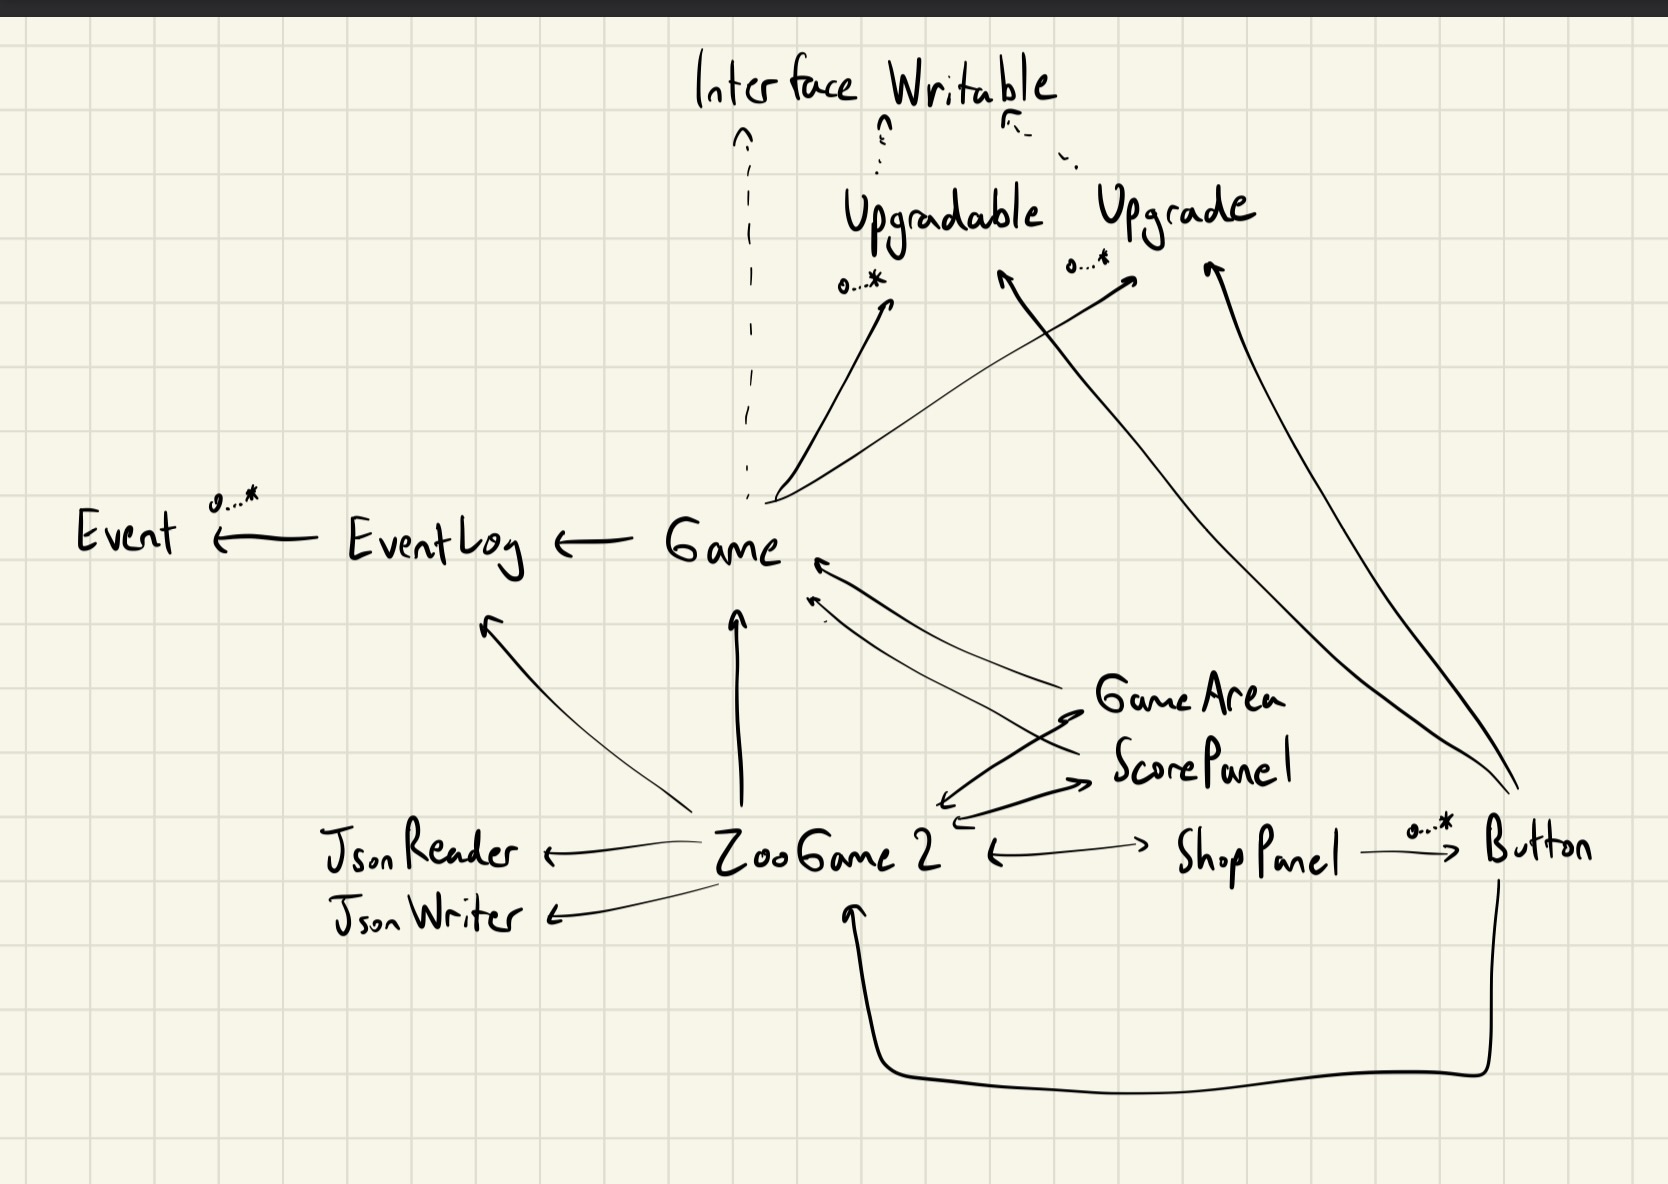 Interface Writable
Upgradable
Upgrade
0...*
0...*
Event
0...*
EventLog
Game
GameArea
ScorePanel
JsonReader
ZooGame2
ShopPanel
0...*
Button
JsonWriter